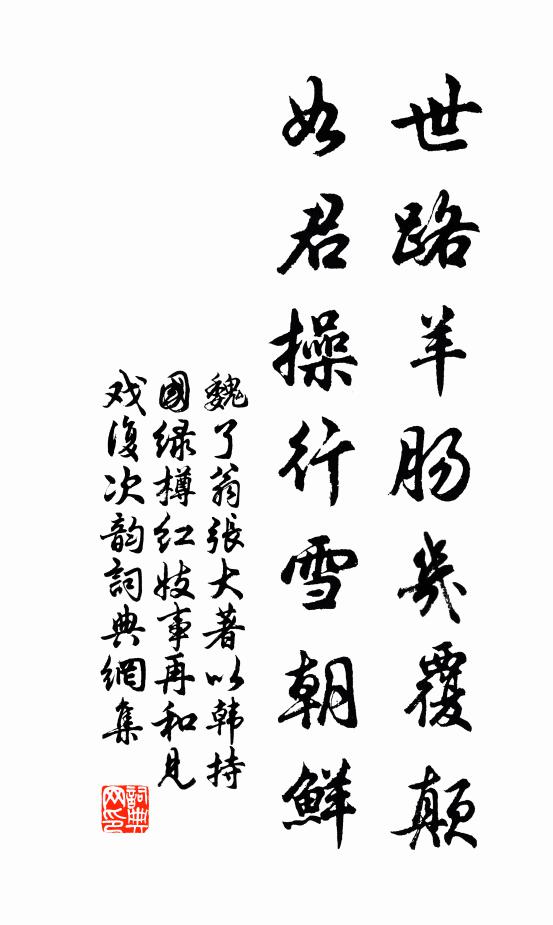 世路羊肠几覆颠
如君操行雪朝鲜
魏了翁张大著以韩持
國绿樽红妓事再和见
戏復次韵詞典網集
詞典
网印